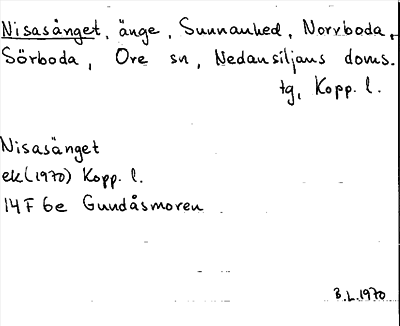 Nisasänget, änge, Sunnanhed, Norrboda,
Sörboda, Ore sn, Nedansiljans doms.
tg, Kopp. l.
Nisasänget
ek (1970) Kopp. l.
14F 6e Gundåsmoren
B.L. 1970